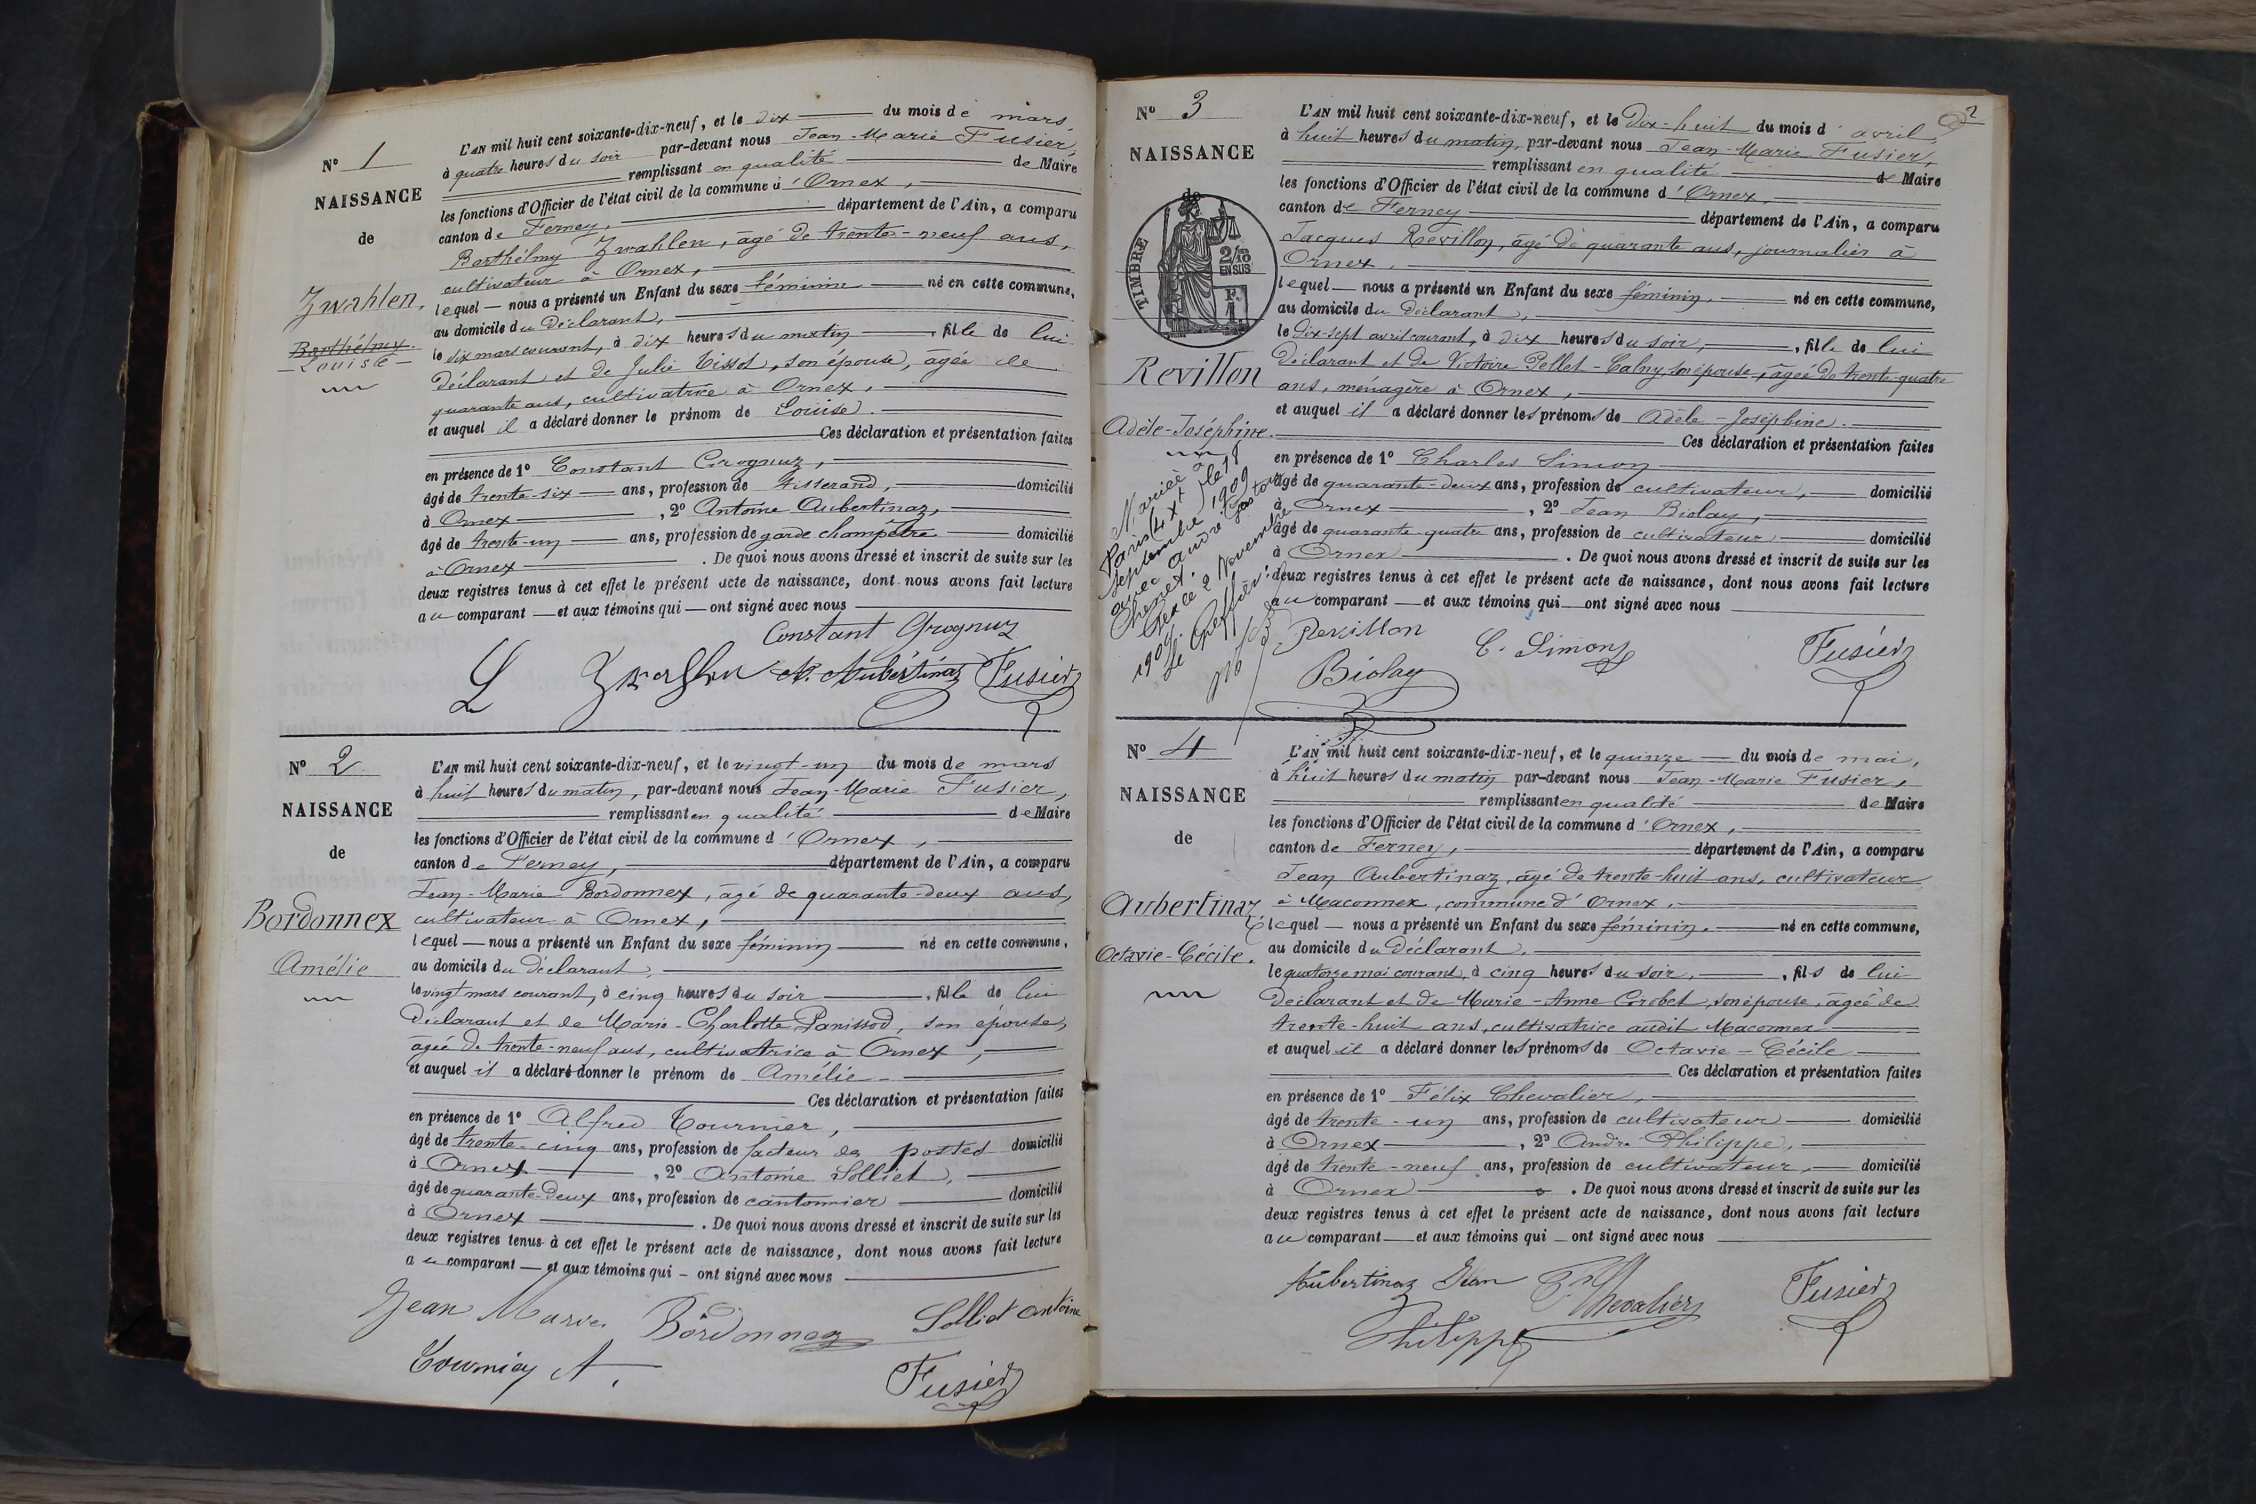 N° 1
NAISSANCE
de
Zwahlen,
Barthélmy.
Louise
L'AN mil huit cent soixante-dix-neuf, et le dix du mois de mars,
à quatre heures du soir par-devant nous Jean-Marie Fusier,
remplissant en qualité de Maire
les fonctions d'Officier de l'état civil de la commune d'Ornex,
canton de Ferney, département de l'Ain, a comparu
Barthélmy Zwahlen, âgé de trente-neuf ans,
cultivateur à Ornex,
lequel nous a présenté un Enfant du sexe féminin né en cette commune,
au domicile du déclarant,
le dix mars courant, à dix heures du matin, fille de lui
déclarant et de Julie Tissot, son épouse, âgée de
quarante ans, cultivatrice à Ornex,
et auquel il a déclaré donner le prénom de Louise.
Ces déclaration et présentation faites
en présence de 1° Constant Grognuz,
âgé de trente-six ans, profession de tisserand, domicilié
à Ornex, 2° Antoine Aubertinaz,
âgé de trente-un ans, profession de garde champêtre domicilié
à Ornex. De quoi nous avons dressé et inscrit de suite sur les
deux registres tenus à cet effet le présent acte de naissance, dont nous avons fait lecture
au comparant et aux témoins qui ont signé avec nous
Constant Grognuz
Aubertinaz Fusier
N° 2
NAISSANCE
de
Bordonnex
Amélie
L'AN mil huit cent soixante-dix-neuf, et le vingt-un du mois de mars
à huit heures du matin, par-devant nous Jean-Marie Fusier,
remplissant en qualité de Maire
les fonctions d'Officier de l'état civil de la commune d'Ornex,
canton de Ferney, département de l'Ain, a comparu
Jean-Marie Bordonnex, âgé de quarante-deux ans,
cultivateur à Ornex,
lequel nous a présenté un Enfant du sexe féminin né en cette commune,
au domicile du déclarant,
le vingt mars courant, à cinq heures du soir, fille de lui
déclarant et de Marie-Charlotte Panissod, son épouse,
âgée de trente-neuf ans, cultivatrice à Ornex,
et auquel il a déclaré donner le prénom de Amélie
Ces déclaration et présentation faites
en présence de 1° Alfred Tournier,
âgé de trente-cinq ans, profession de facteur des postes domicilié
à Ornex, 2° Antoine Solliet,
âgé de quarante-deux ans, profession de cantonnier domicilié
à Ornex. De quoi nous avons dressé et inscrit de suite sur les
deux registres tenus à cet effet le présent acte de naissance, dont nous avons fait lecture
au comparant et aux témoins qui ont signé avec nous
Jean Marie Bordonnex Solliet Antoine
Tournier A. Fusier
2
N° 3
NAISSANCE
de
TIMBRE
2/10
EN SUS
Revillon
Adèle-Joséphine.
Mariée à
Paris (4e) le 18
septembre 1909
avec André Gaston
2 Novembre
1909.
Le Greffier:
L'AN mil huit cent soixante-dix-neuf, et le dix-huit du mois d'avril
à huit heures du matin, par-devant nous Jean-Marie Fusier,
remplissant en qualité de Maire
les fonctions d'Officier de l'état civil de la commune d'Ornex,
canton de Ferney département de l'Ain, a comparu
Jacques Revillon, âgé de quarante ans, journalier à
Ornex,
lequel nous a présenté un Enfant du sexe féminin, né en cette commune,
au domicile du déclarant,
le dix-sept avril courant, à dix heures du soir, fille de lui
déclarant et de Victoire Pellet-Calny, son épouse, âgée de trente-quatre
ans, ménagère à Ornex,
et auquel il a déclaré donner les prénoms de Adèle-Joséphine.
Ces déclaration et présentation faites
en présence de 1° Charles Simon
âgé de quarante-deux ans, profession de cultivateur, domicilié
à Ornex, 2° Jean Biolay,
âgé de quarante-quatre ans, profession de cultivateur domicilié
à Ornex. De quoi nous avons dressé et inscrit de suite sur les
deux registres tenus à cet effet le présent acte de naissance, dont nous avons fait lecture
au comparant et aux témoins qui ont signé avec nous
Revillon C. Simon Fusier
Biolay
N° 4
NAISSANCE
de
Aubertinaz
Octavie-Cécile.
L'AN mil huit cent soixante-dix-neuf, et le quinze du mois de mai,
à huit heures du matin par-devant nous Jean-Marie Fusier,
remplissant en qualité de Maire
les fonctions d'Officier de l'état civil de la commune d'Ornex,
canton de Ferney, département de l'Ain, a comparu
Jean Aubertinaz, âgé de trente-huit ans, cultivateur
à Maconnex, commune d'Ornex,
lequel nous a présenté un Enfant du sexe féminin, né en cette commune,
au domicile du déclarant,
le quatorze mai courant, à cinq heures du soir, fils de lui
déclarant et de Marie-Anne Grobet, son épouse, âgée de
trente-huit ans, cultivatrice audit Maconnex
et auquel il a déclaré donner les prénoms de Octavie-Cécile
Ces déclaration et présentation faites
en présence de 1° Félix Chevalier,
âgé de trente-un ans, profession de cultivateur domicilié
à Ornex, 2° André Philippe,
âgé de trente-neuf ans, profession de cultivateur, domicilié
à Ornex. De quoi nous avons dressé et inscrit de suite sur les
deux registres tenus à cet effet le présent acte de naissance, dont nous avons fait lecture
au comparant et aux témoins qui ont signé avec nous
Aubertinaz Jean Chevalier Fusier
Philippe